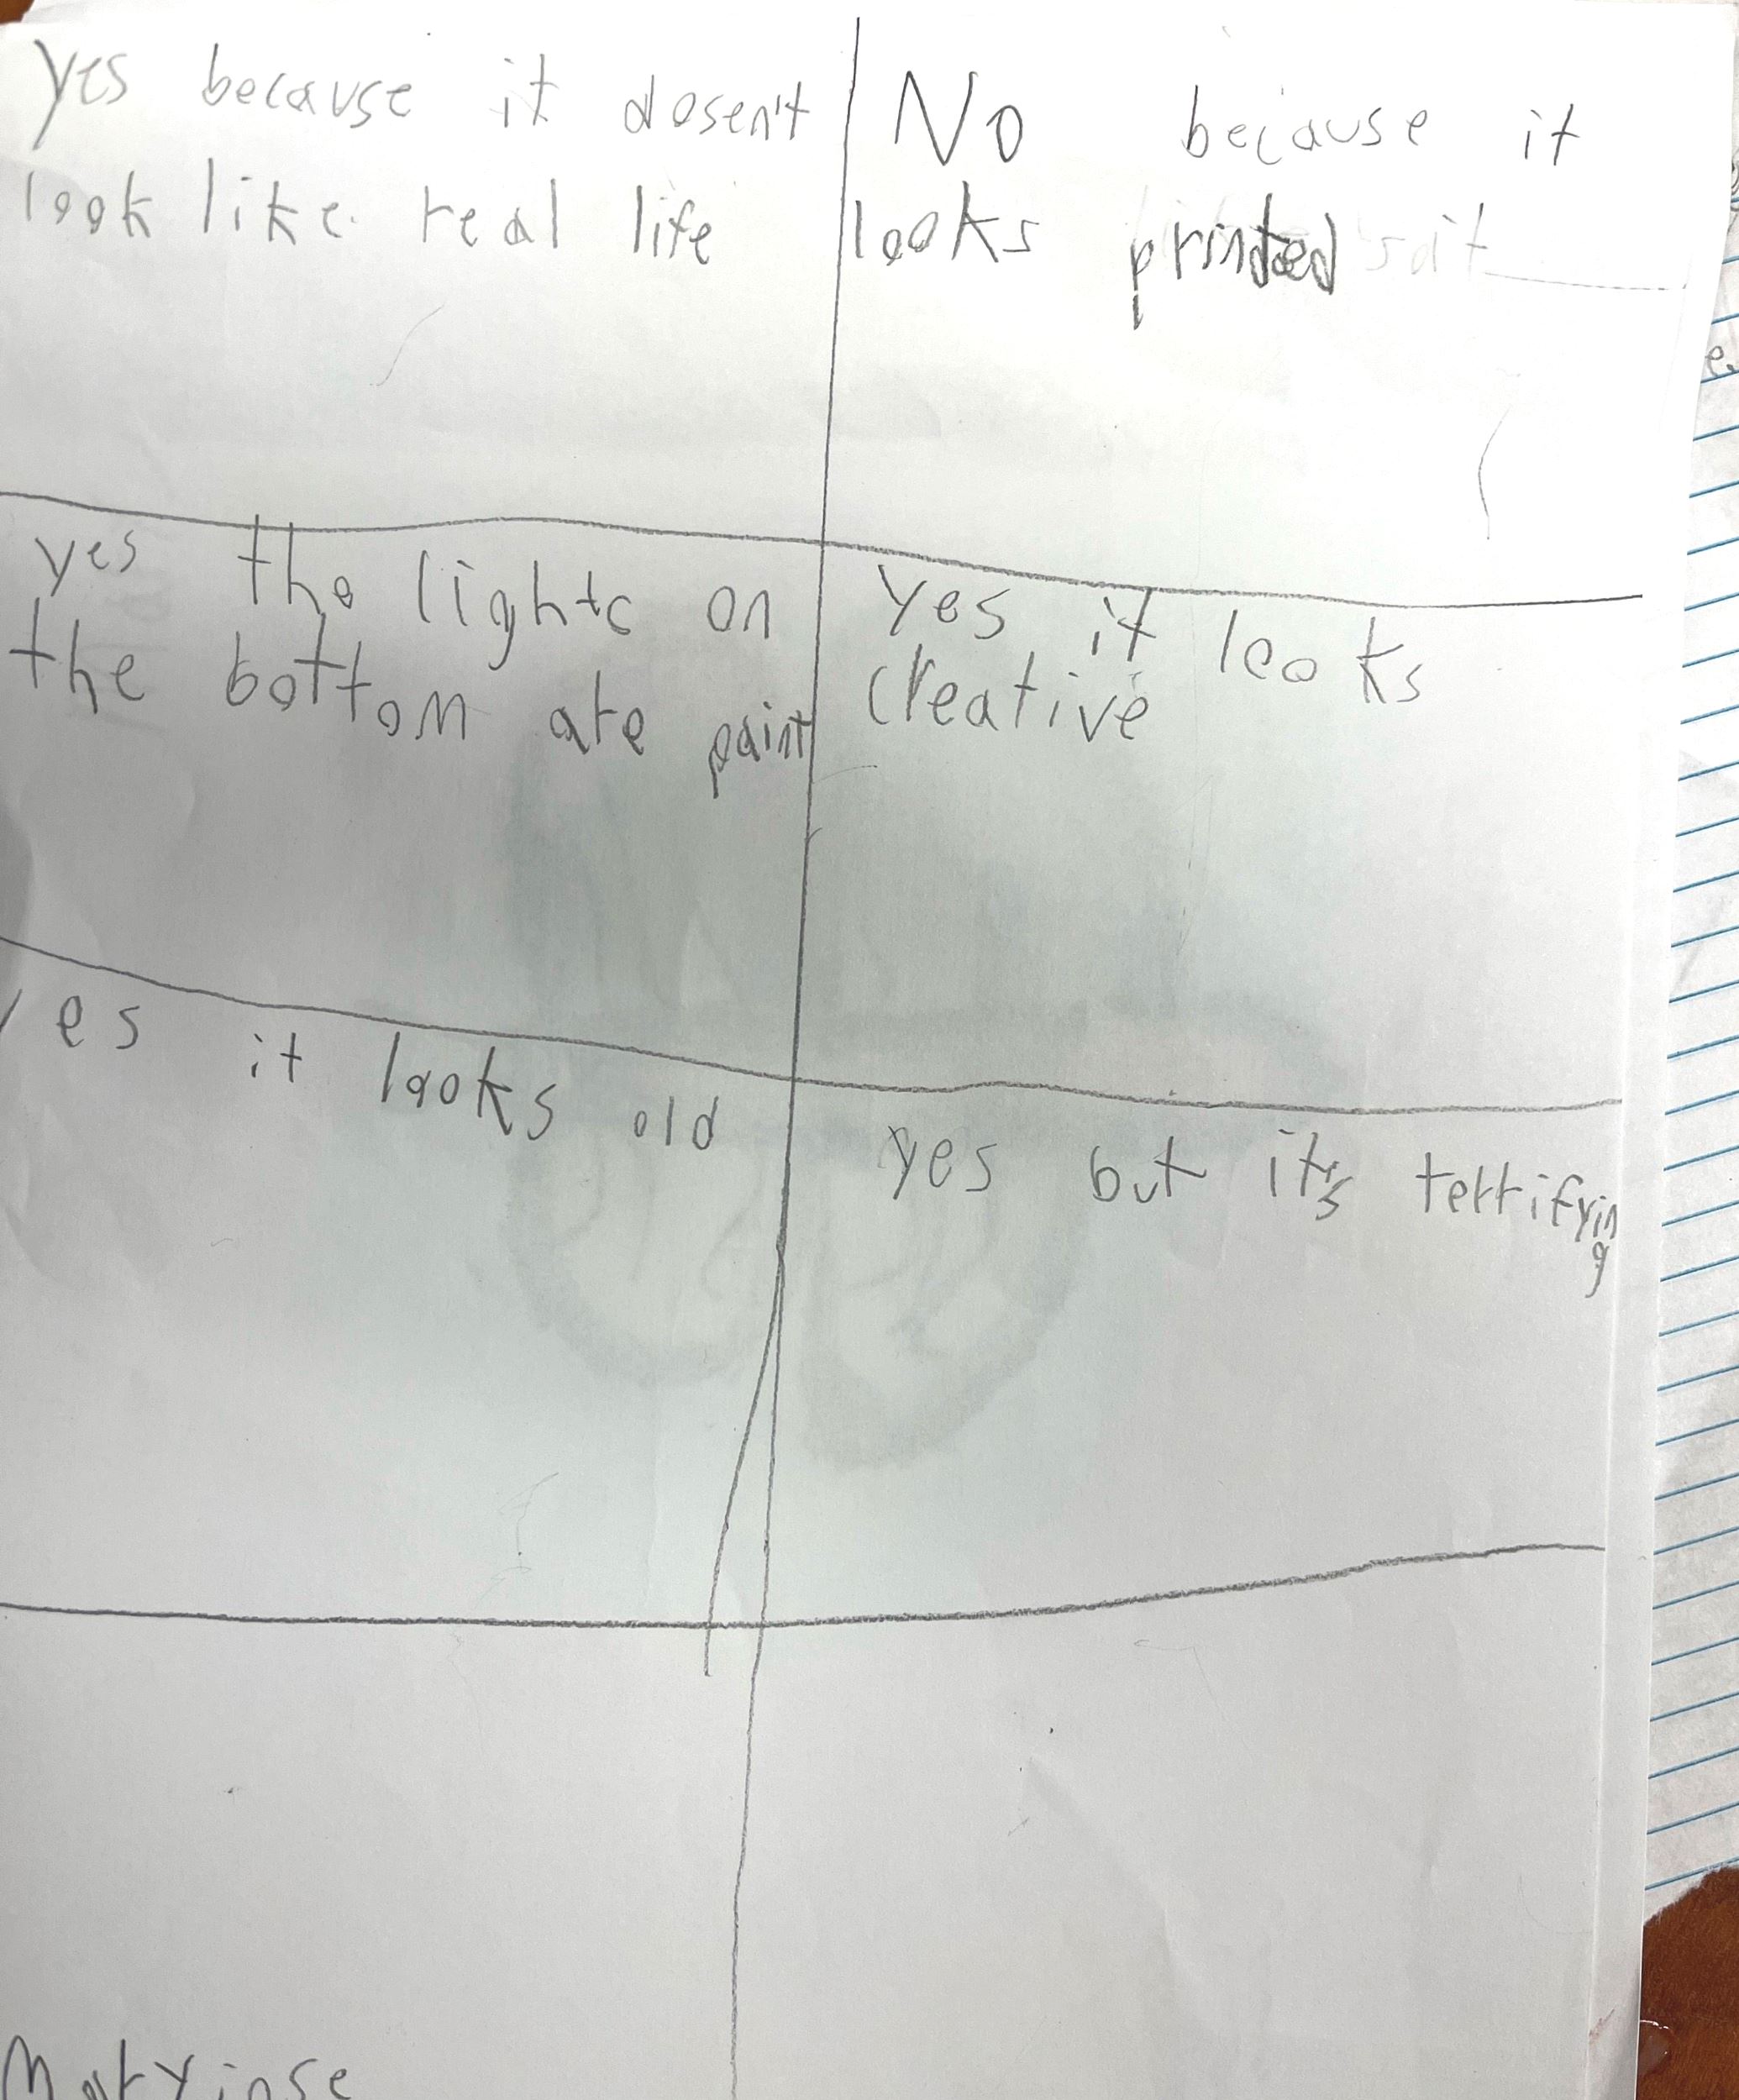 yes because it dosen't
look like real life
No because it
looks printed
yes the lights on
the bottom are paint
yes it looks
creative
yes it looks old
yes but it's terrifying